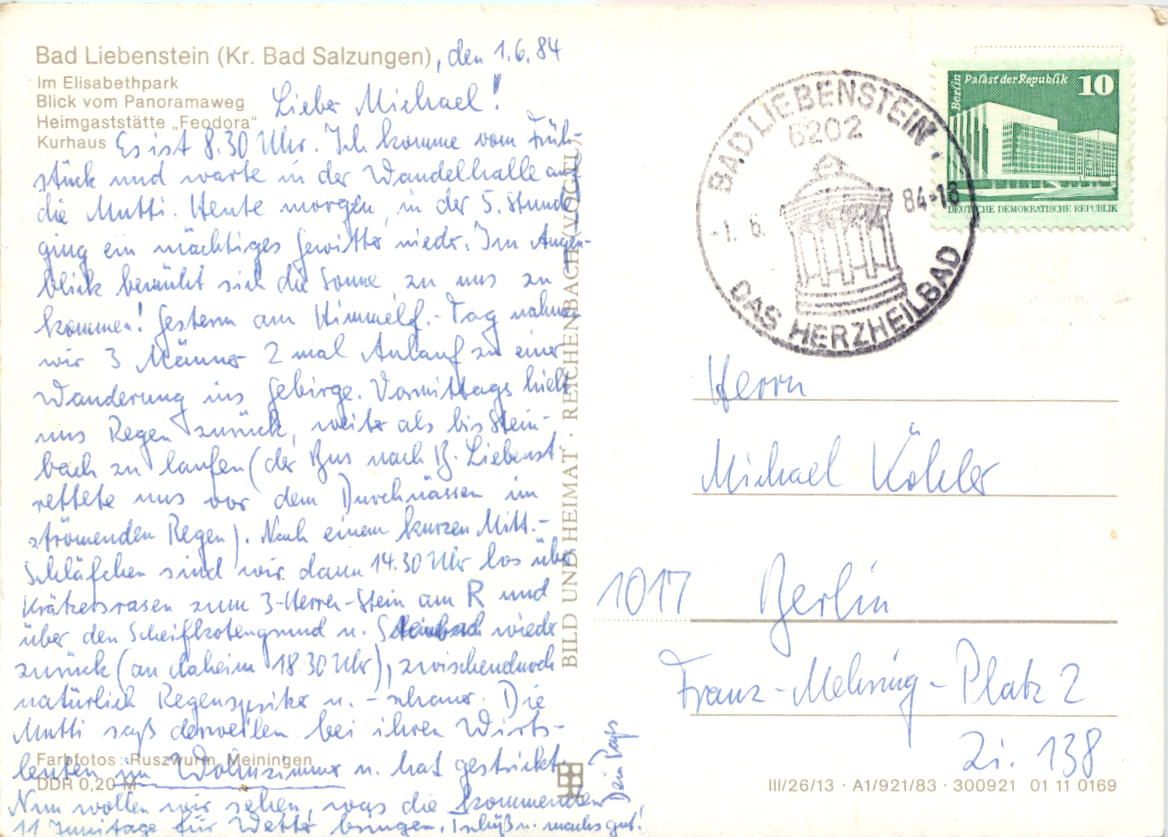 Bad Liebenstein (Kr. Bad Salzungen), den 1.6.84
Im Elisabethpark
Blick vom Panoramaweg
Heimgaststätte „Feodora"
Kurhaus
Lieber Michael!
Es ist 8.30 Uhr. Ich komme vom Früh-
stück und warte in der Wandelhalle auf
die Mutti. Heute morgen in der 5. Stunde
ging ein mächtiges Gewitter nieder. Im Augen-
blick bemüht sich die Sonne zu uns zu
kommen! Gestern am Himmelf.-Tag nahmen
wir 3 Männer 2 mal Anlauf zu einer
Wanderung ins Gebirge. Vormittags hielt
uns Regen zurück, weiter als bis Stein-
bach zu laufen (der Bus nach B. Liebenst.
rettete uns vor dem Durchnässen im
strömenden Regen). Nach einem kurzen Mitt.-
Schläfchen sind wir dann 14.30 Uhr los über
Krätzersrasen zum 3-Herren-Stein am R und
über den Scheifkotengrund u. Steinbach wieder
zurück (an daheim 18.30 Uhr), zwischendurch
natürlich Regenspritzer u. -schauer. Die
Mutti saß derweilen bei ihren Wirts-
leuten im Wohnzimmer u. hat gestrickt.
Nun wollen wir sehen, was die kommenden
11 Junitage für Wetter bringen. Tschüß u. machs gut!
Dein Papa
Farbfotos: Ruszwurm, Meiningen
DDR 0,20 M
BILD UND HEIMAT · REICHENBACH (VOGTL)
BAD LIEBENSTEIN
6202
-1. 6. 84-18
DAS HERZHEILBAD
Berlin Palast der Republik 10
DEUTSCHE DEMOKRATISCHE REPUBLIK
Herrn
Michael Köhler
1017 Berlin
Franz-Mehring-Platz 2
Zi. 138
III/26/13 · A1/921/83 · 300921 01 11 0169